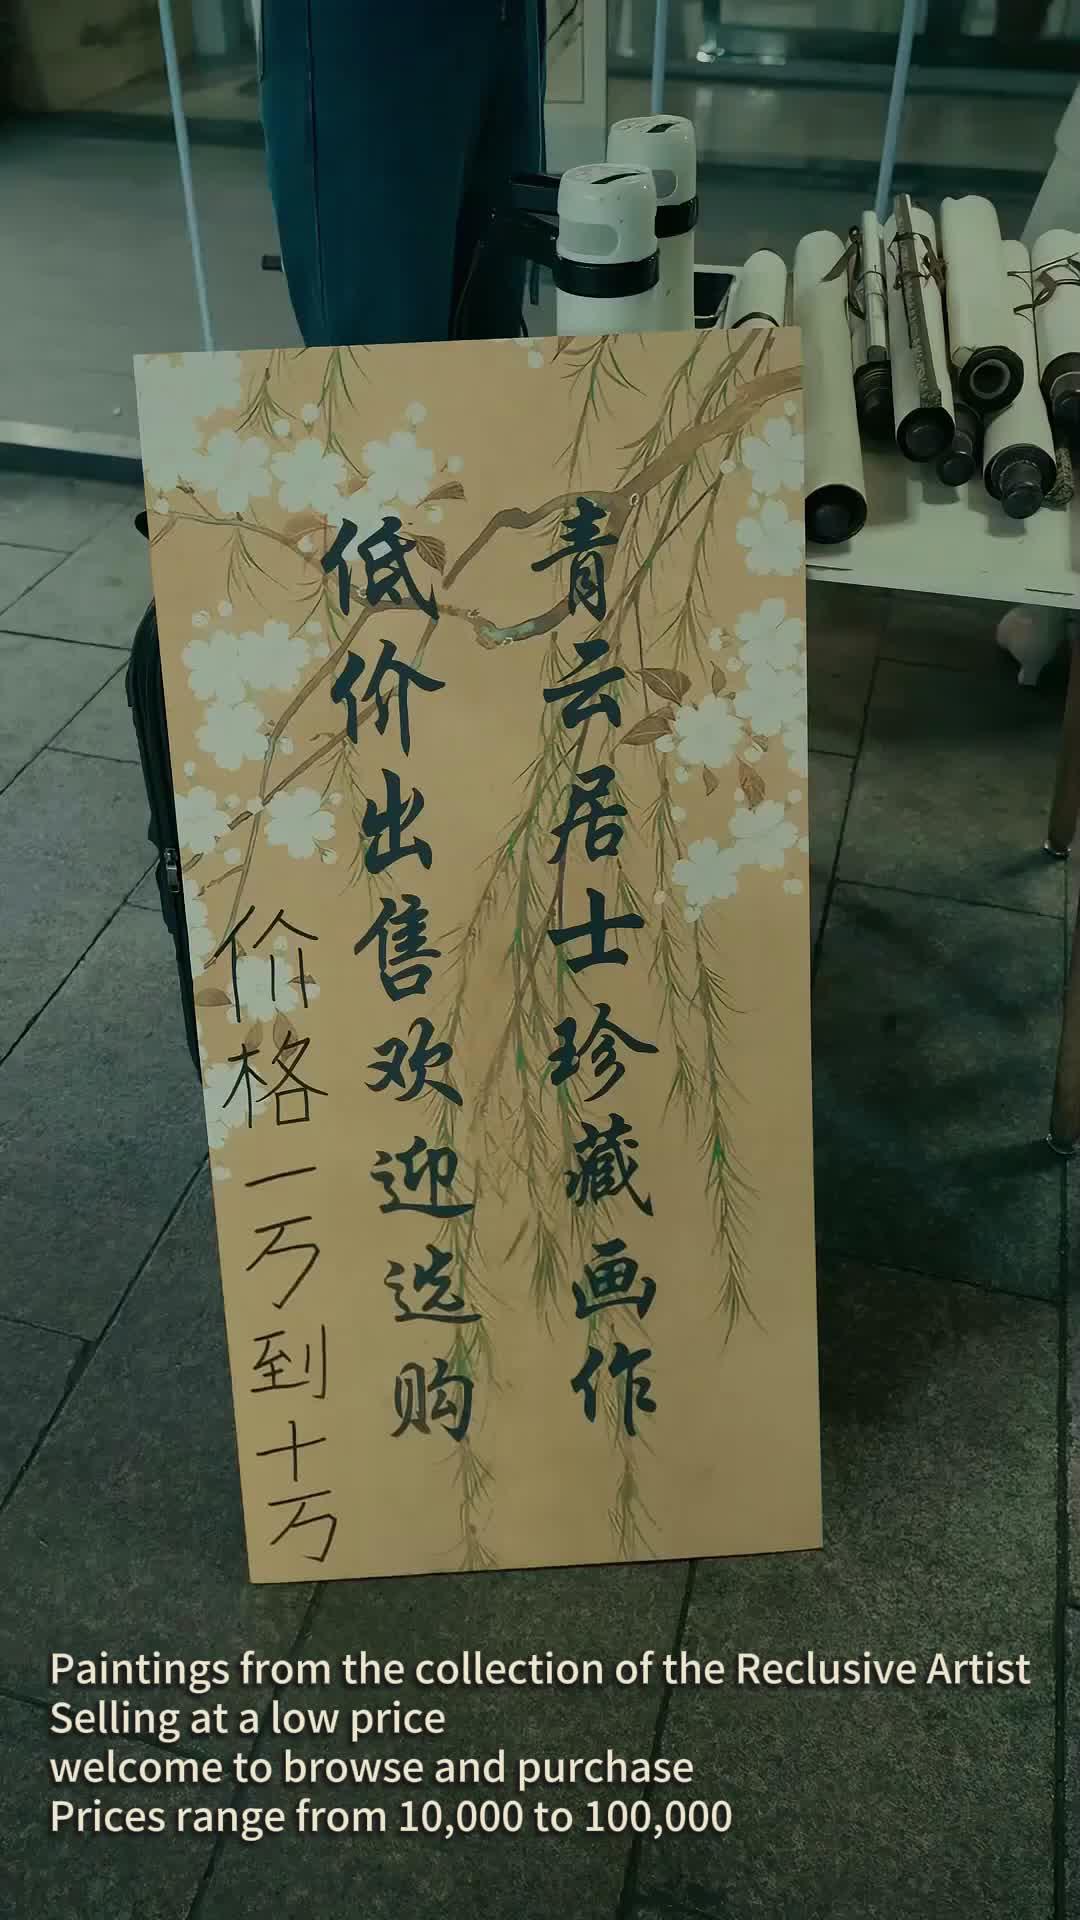 青云居士珍藏画作
低价出售欢迎选购
价格一万到十万
Paintings from the collection of the Reclusive Artist
Selling at a low price
welcome to browse and purchase
Prices range from 10,000 to 100,000